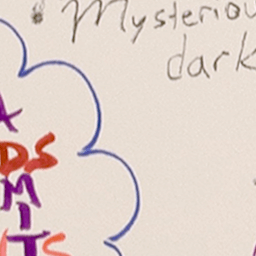 Mysteriou
dark
DS
M
I
TS